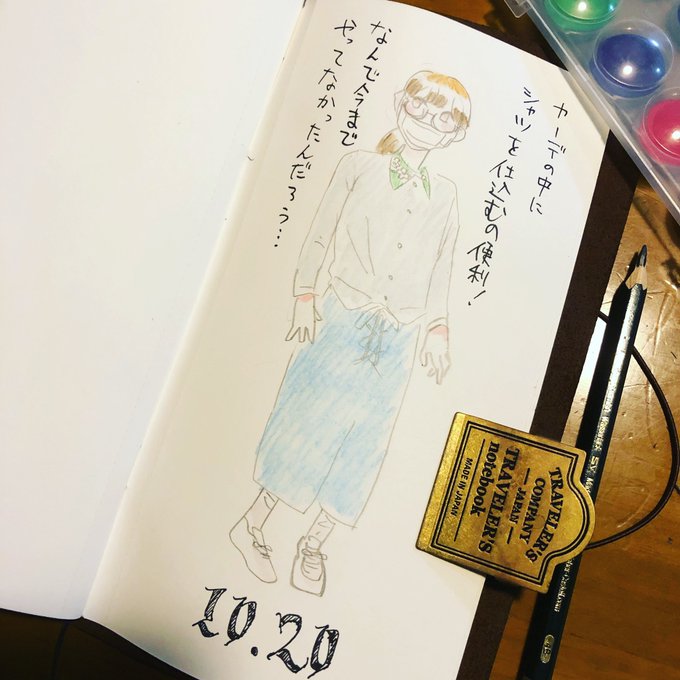 カーデの中に
シャツを仕込むの便利！
なんで今まで
やってなかったんだろう…
10.20
TRAVELER'S
COMPANY
JAPAN
TRAVELER'S
notebook
MADE IN JAPAN